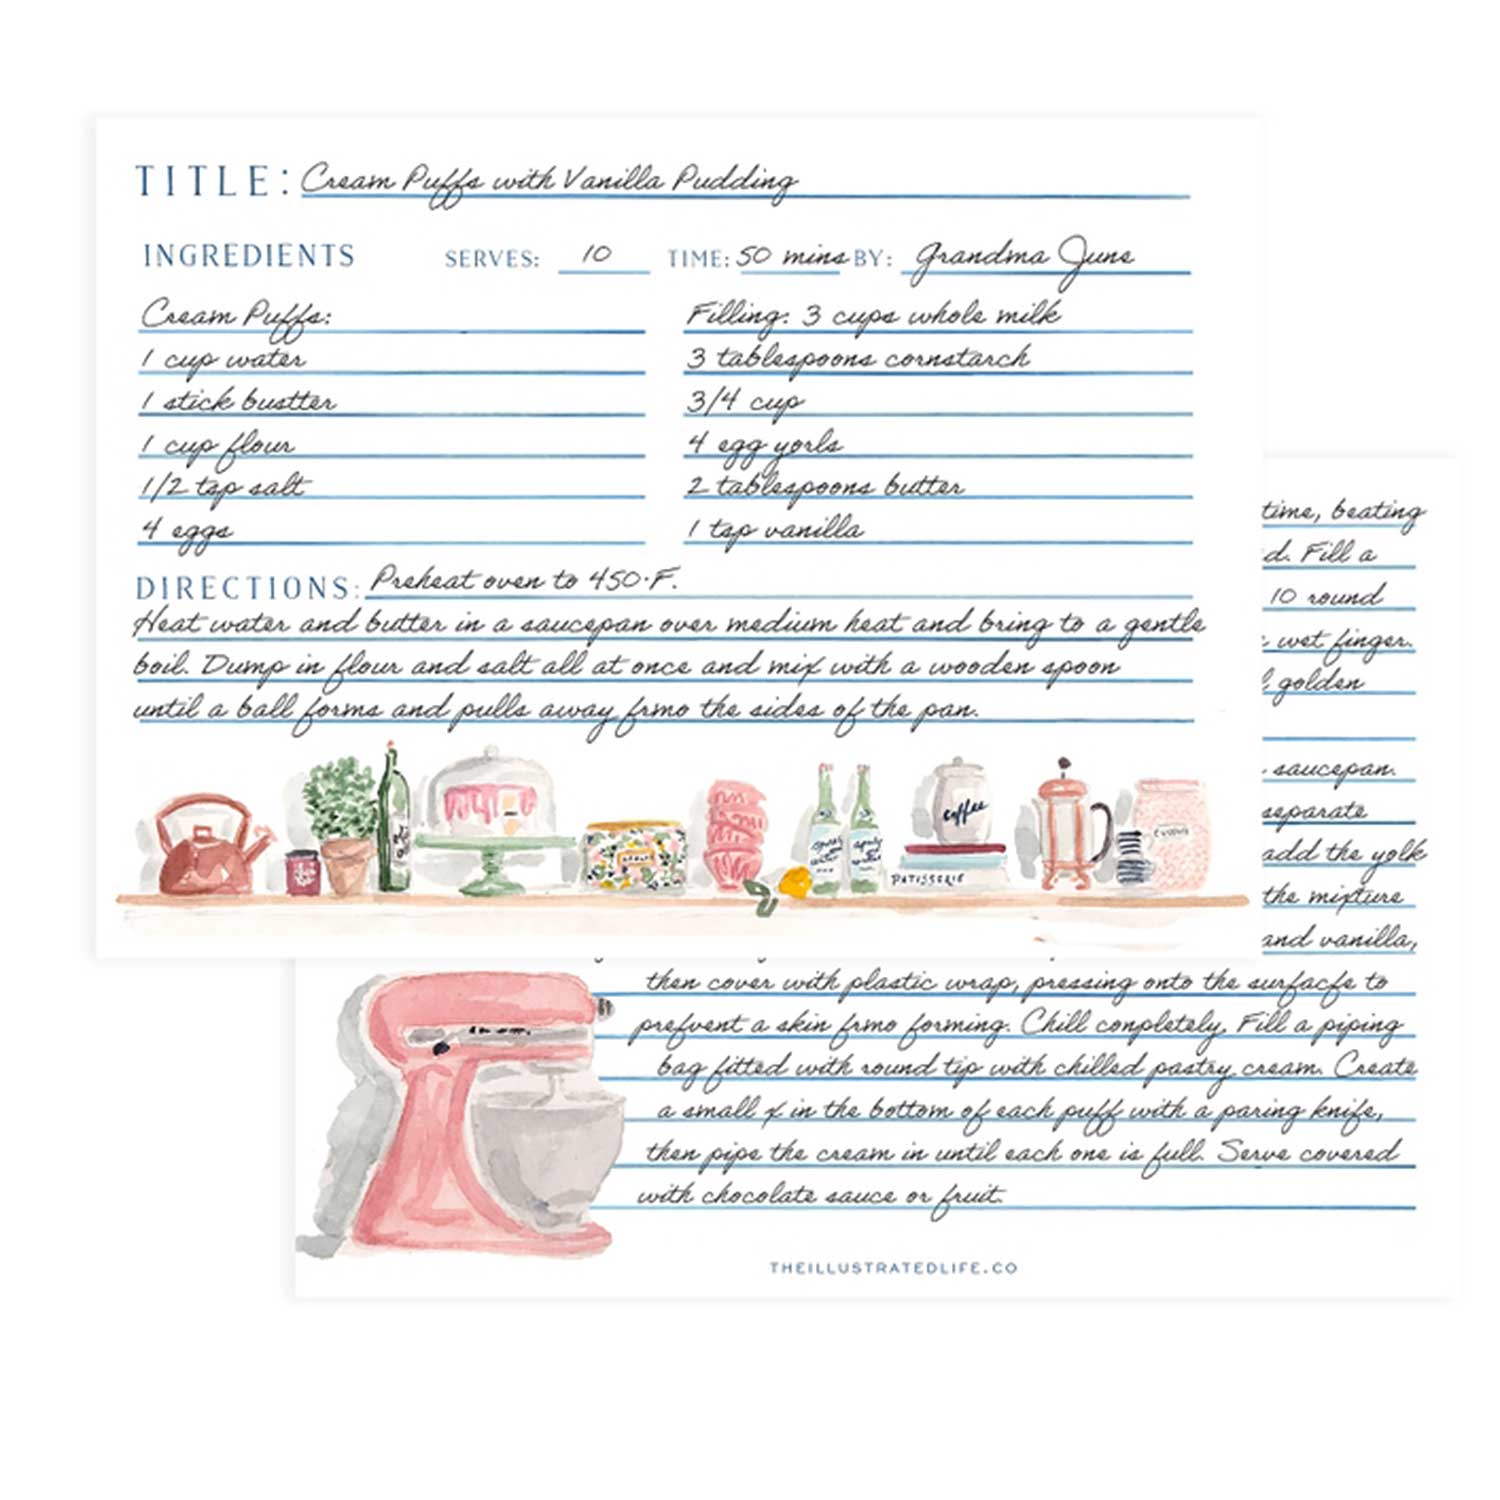 TITLE: Cream Puffs with Vanilla Pudding
INGREDIENTS SERVES: 10 TIME: 50 mins BY: Grandma June
Cream Puffs:
1 cup water
1 stick bustter
1 cup flour
1/2 tsp salt
4 eggs
Filling: 3 cups whole milk
3 tablespoons cornstarch
3/4 cup
4 egg yorls
2 tablespoons butter
1 tsp vanilla
DIRECTIONS: Preheat oven to 450·F.
Heat water and butter in a saucepan over medium heat and bring to a gentle
boil. Dump in flour and salt all at once and mix with a wooden spoon
until a ball forms and pulls away frmo the sides of the pan.
coffee
PATISSERIE
time, beating
d. Fill a
10 round
wet finger.
golden
saucepan.
separate
add the yolk
the mixture
and vanilla,
then cover with plastic wrap, pressing onto the surfacfe to
prefvent a skin frmo forming. Chill conpletely. Fill a piping
bag fitted with round tip with chilled pastry cream. Create
a small x in the bottom of each puff with a paring knife,
then pipe the cream in until each one is full. Serve covered
with chocolate sauce or fruit.
THEILLUSTRATEDLIFE.CO